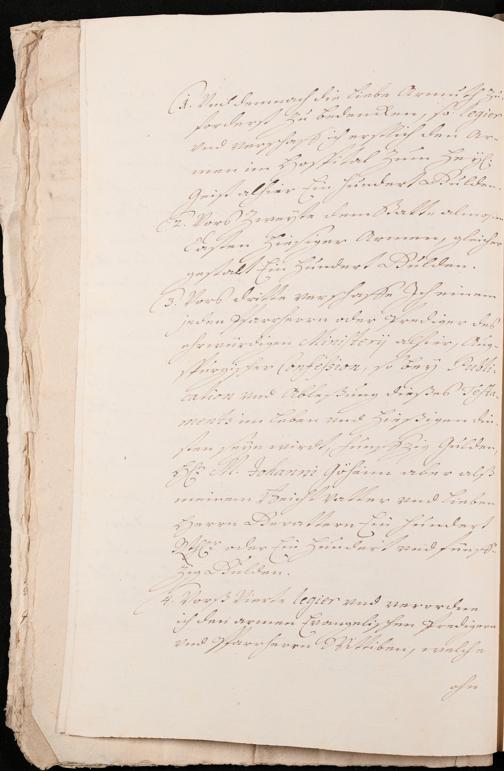 1. Und demnach die liebe Armuth zu
forderst zu bedencken, so legier
und verschaff ich erstlich den Ar-
men im Hospital zum Heyl:
Geist alhier Ein hundert Gulden.
2. Vors Zweyte dem Statt almosen
Casten hiesiger Armen, gleicher
gestalt Ein hundert Gulden.
3. Vors dritte verschaffe Ich einem
jeden Pfarrherrn oder Prediger des
ehrwürdigen Ministerij alhier, Aug-
spurgischer Confession, so bey Publi-
cation und Ableßung dießes Testa-
ments im leben und hießigen Din-
sten seyn wirdt, funffzig Gulden,
H: M. Johanni aber alß
meinem Beicht vatter und lieben
Herrn Gevattern Ein hundert
oder Ein hundert und funff-
zig Gulden.
4. Vorß Vierte legier und verordne
ich den armen Evangelischen Predigern
und Pfarrherrn Wittiben, welche
ohn